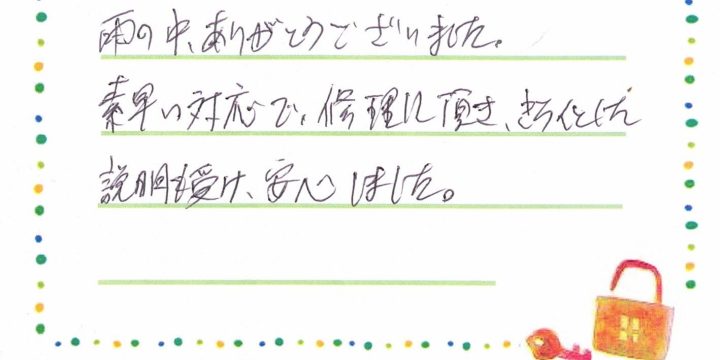 雨の中、ありがとうございました。
素早い対応で、修理に頂き、きちんとした
説明も受け、安心しました。